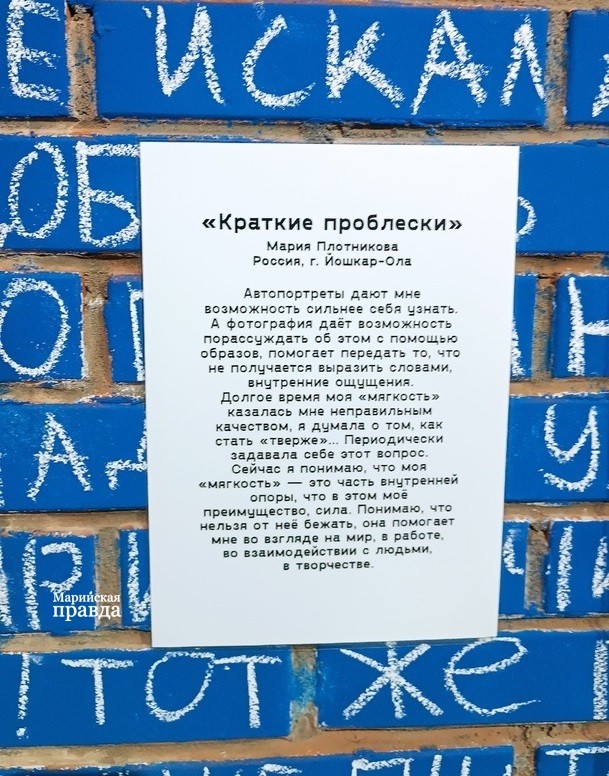 Е ИСКАЛ
ОБ
«Краткие проблески»
Мария Плотникова
Россия, г. Йошкар-Ола
Автопортреты дают мне
возможность сильнее себя узнать.
А фотография даёт возможность
порассуждать об этом с помощью
образов, помогает передать то, что
не получается выразить словами,
внутренние ощущения.
Долгое время моя «мягкость»
казалась мне неправильным
качеством, я думала о том, как
стать «тверже»... Периодически
задавала себе этот вопрос.
Сейчас я понимаю, что моя
«мягкость» — это часть внутренней
опоры, что в этом моё
преимущество, сила. Понимаю, что
нельзя от неё бежать, она помогает
мне во взгляде на мир, в работе,
во взаимодействии с людьми,
в творчестве.
Марийская
правда
тот же